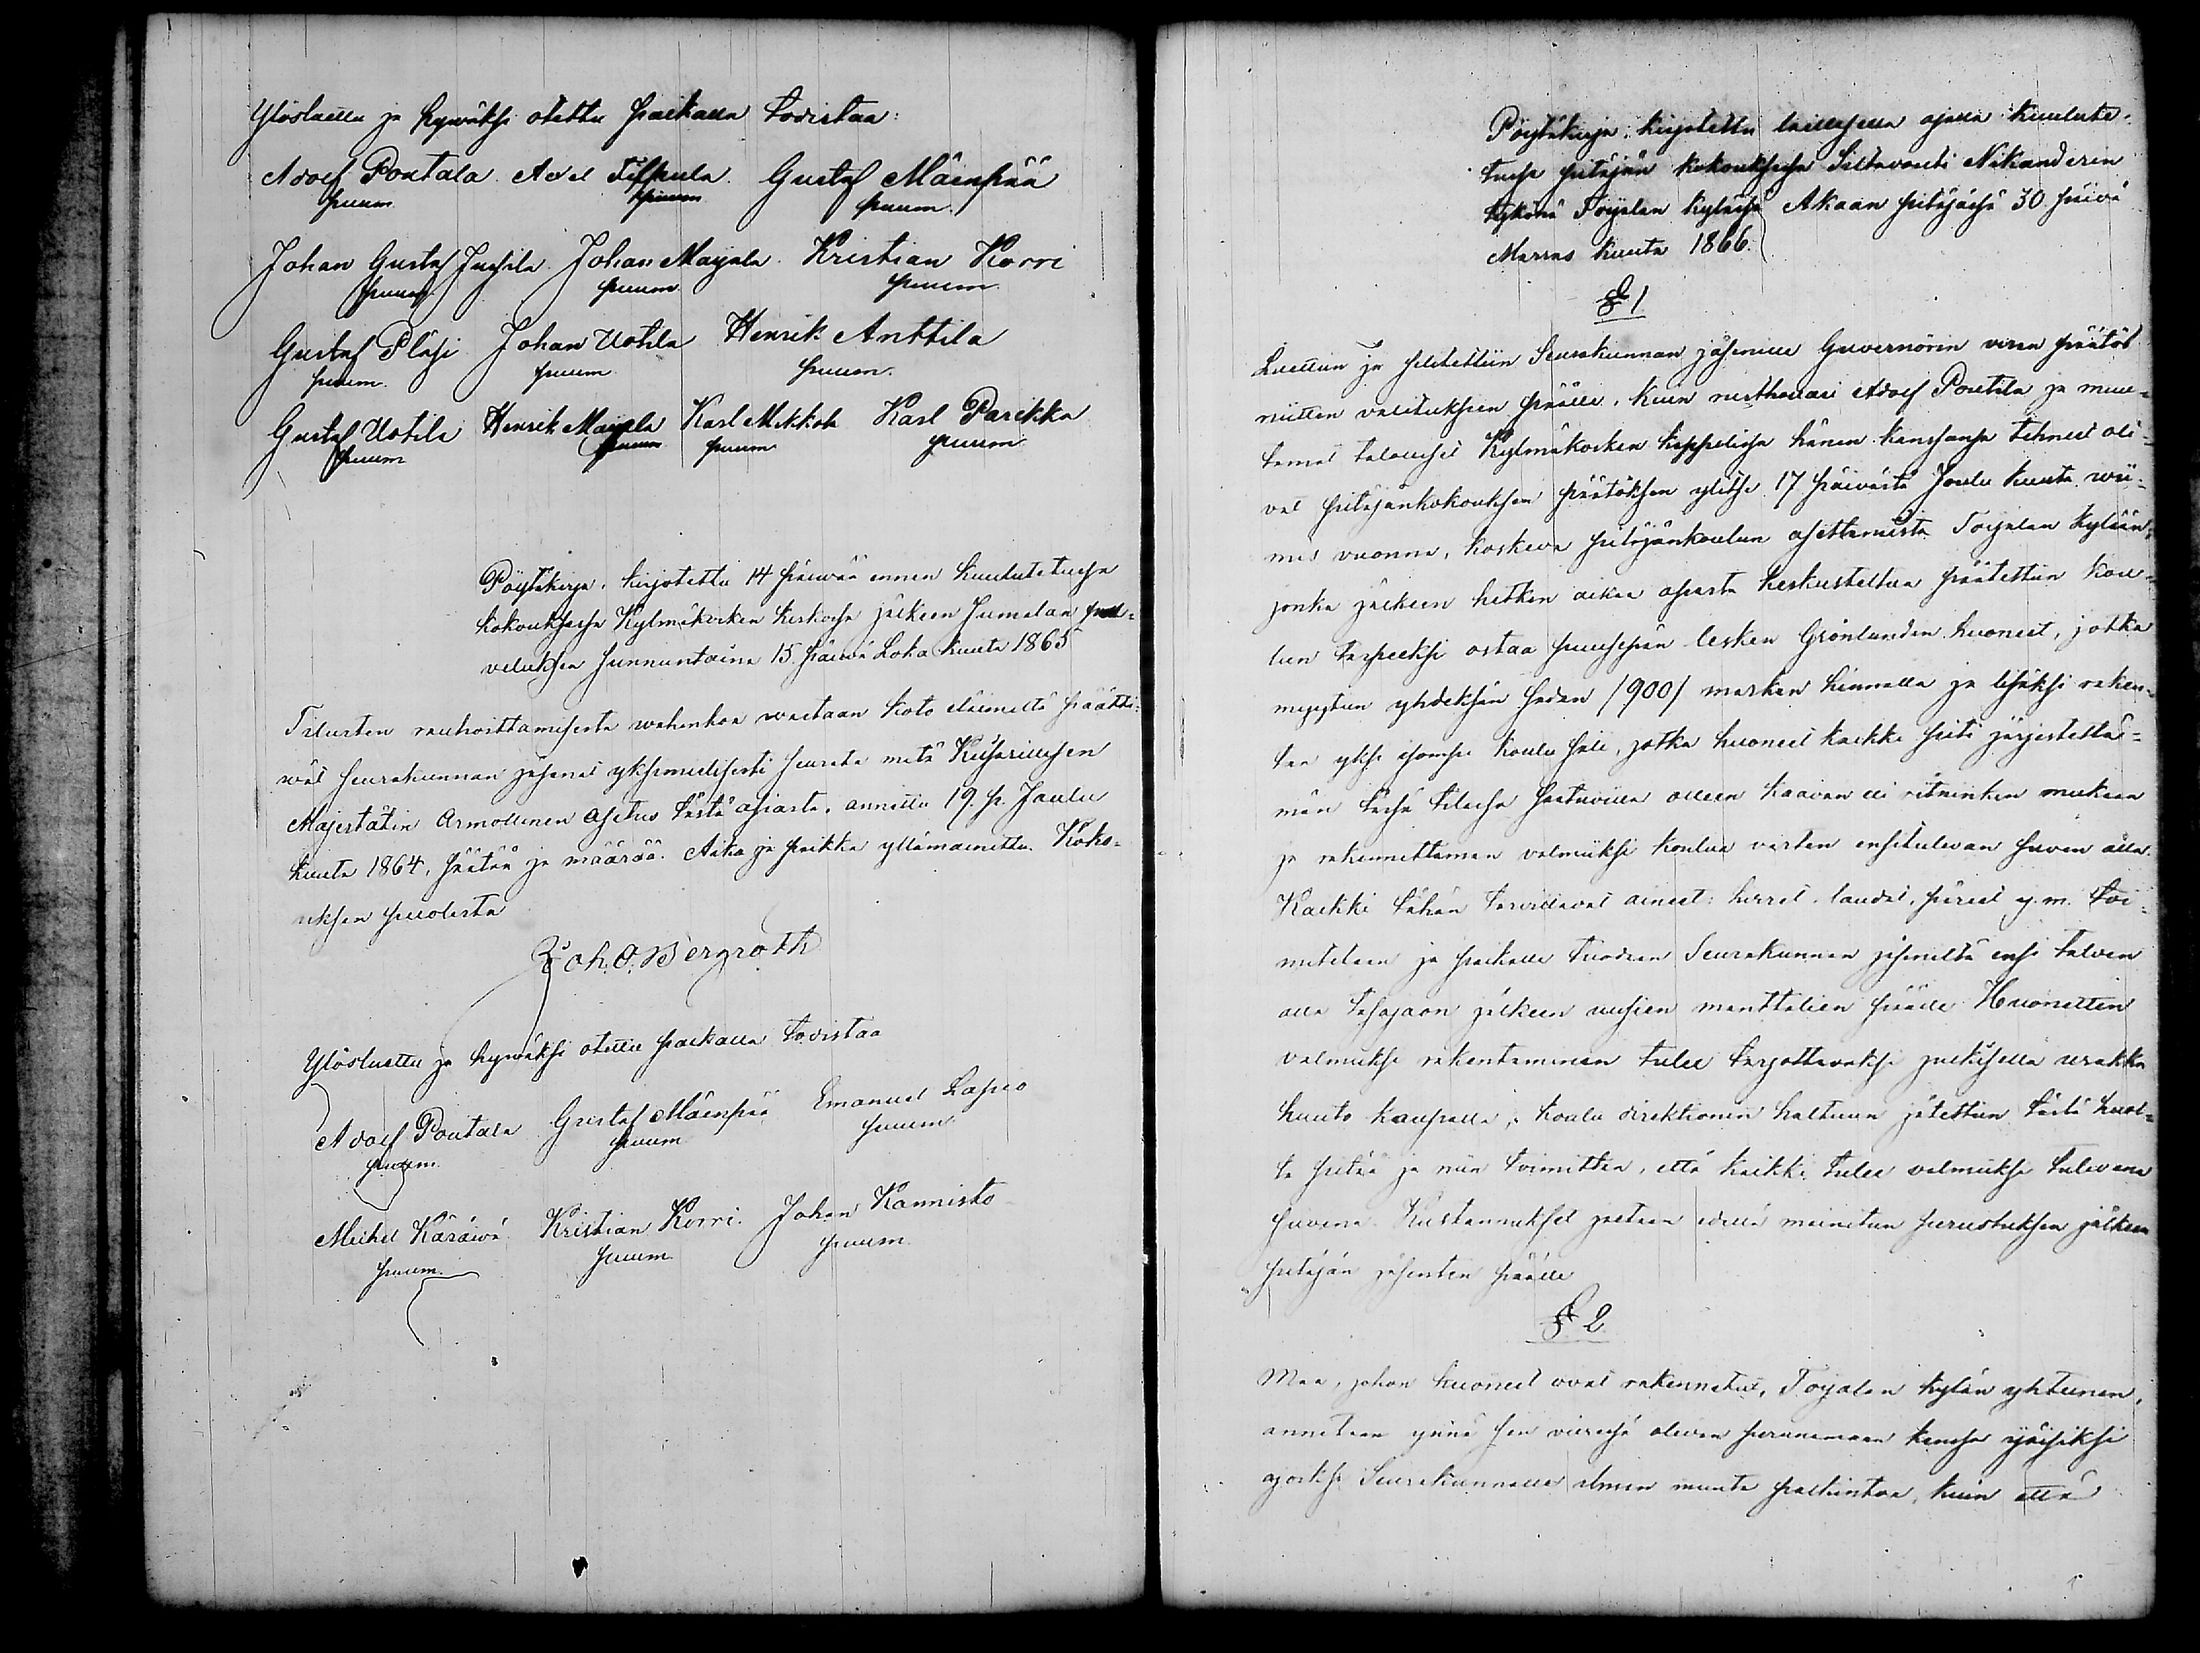 Ylösluettu ja hywäksi otettu paikalla todistaa:
Adolf Pontala Axel Filpula Gustaf Mäenpää
puum. puum. puum.
Johan Gustaf Jussila. Johan Mayala. Kristian Korri
puum. puum. puum.
Gustaf Pläsi Johan Uotila Henrik Anttila
puum. puum. puum.
Gustaf Uotila Henrik Mayala Karl Mikkola Karl Parikka
puum. puum. puum. puum.
Pöytäkirja, kirjotettu 14 päiwää ennen kuulutetussa
kokouksessa Kylmäkosken kirkossa jälkeen Jumalan pal-
veluksen sunnuntaina 15 päiwä Loka kuuta 1865
Tilusten rauhoittamisesta wahinkoa wastaan koto eläimiltä päätti-
wät seurakunnan jäsenet yksimielisesti seurata mitä Keisarillisen
Majestätin Armollinen Asetus tästä asiasta, annettu 19. p. Joulu
kuuta 1864, säätää ja määrää. Aika ja paikka yllämainittu. Koko-
uksen puolesta
Joh. O. Bergroth
Ylösluettu ja hywäksi otettu paikalla todistaa
Adolf Pontala Gustaf Mäenpää Emanuel Lapio
puum. puum. puum.
Mickel Käräwä Kristian Korri. Johan Kannisto
puum. puum. puum.
Pöytäkirja, kirjotettu laillisella ajalla kuulute-
tussa pitäjän kokouksessa Siltavouti Nikanderin
tykönä Toijalan kylässä Akaan pitäjässä 30 päivä
Marras kuuta 1866.
§ 1
Luettiin ja selitettiin Seurakunnan jäsenille Guvernörin viran päätös
niitten valituksien päälle, kuin rusthollari Adolf Pontila ja muu-
tamat talolliset Kylmäkosken kappelissa hänen kanssansa tehneet oli-
vat pitäjänkokouksen päätöksen ylitse 17 päivästä Joulu kuuta wii-
mes vuonna, koskeva pitäjänkoulun asettamista Toijalan kylään,
jonka jälkeen hetken aikaa asiasta keskusteltua päätettiin kou-
lun tarpeeksi ostaa puusepän lesken Grönlundin huoneet, jotka
myytiin yhdeksän sadan /900/ markan hinnalla ja lisäksi raken-
taa yksi isompi koulu sali, jotka huoneet kaikki piti järjestettä-
män tässä tilassa saatavilla olleen kaavan eli ritningin mukaan
ja rakennettaman valmiiksi koulua varten ensitulevan suven alla.
Kaikki tähän tarvittavat aineet: hirret, laudat, päreet y. m. toi-
mitetaan ja paikalle tuodaan Seurakunnan jäseniltä ensi talven
alla tasajaon jälkeen uusien manttalien päälle. Huonetten
valmiiksi rakentaminen tulee tarjottavaksi julkisella urakka
huuto kaupalla, koulu direktionin haltuun jätettiin tästä huol-
ta pitää ja niin toimittaa, että kaikki tulee valmiiksi tulevana
suvena. Kustannukset jaetaan edellä mainitun perustuksen jälkeen
pitäjän jäsenten päälle
§ 2
Maa, johon huoneet ovat rakennetut, Toijalan kylän yhteinen,
annetaan ynnä sen vieressä olevan perunamaan kanssa ijäiseksi
ajaksi Seurakunnalle ilman muuta palkintoa, kuin että